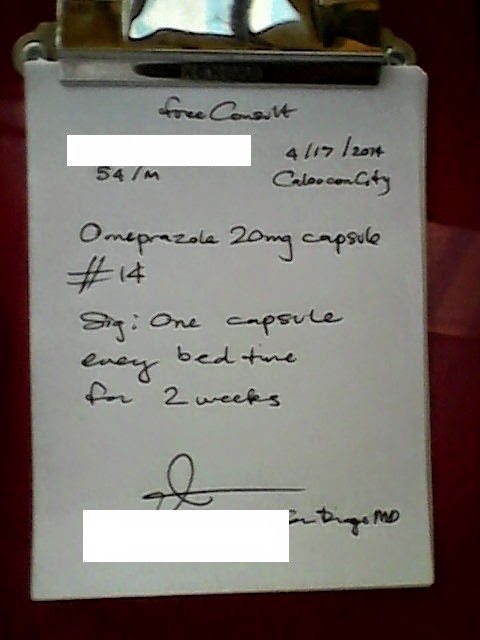 free Consult
4/17/2014
54/M
Caloocan City
Omeprazole 20mg capsule
#14
Sig: One capsule
every bed time
for 2 weeks
MD